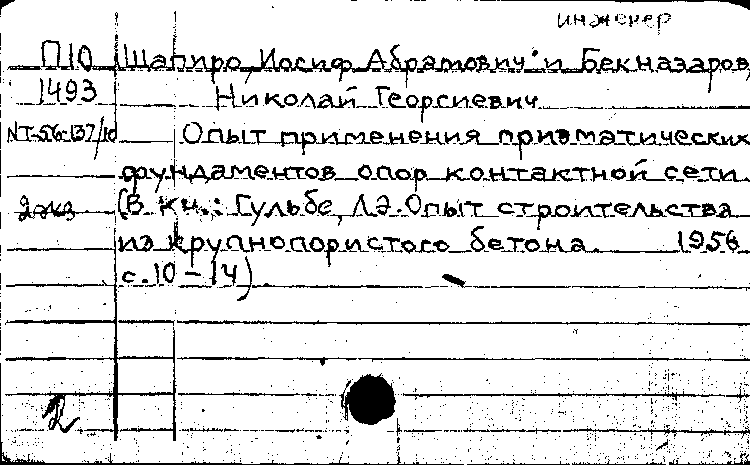 инженер
П10 Шапиро, Иосиф Абрамович и Бекназаров,
1493 Николай Георгиевич
NT-56-137/10 Опыт применения призматических
фундаментов опор контактной сети.
2 экз (В кн.: Гульбе, Л.Э. Опыт строительства
из крупнопористого бетона. 1956
с. 10-14)
2